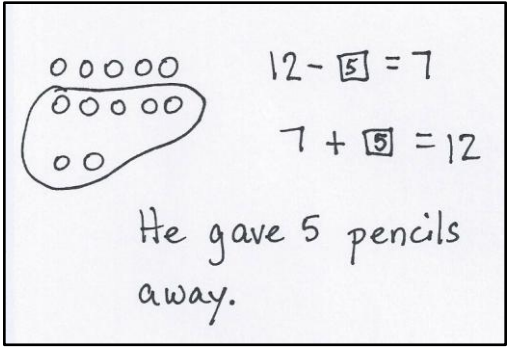 12 - 5 = 7
7 + 5 = 12
He gave 5 pencils
away.